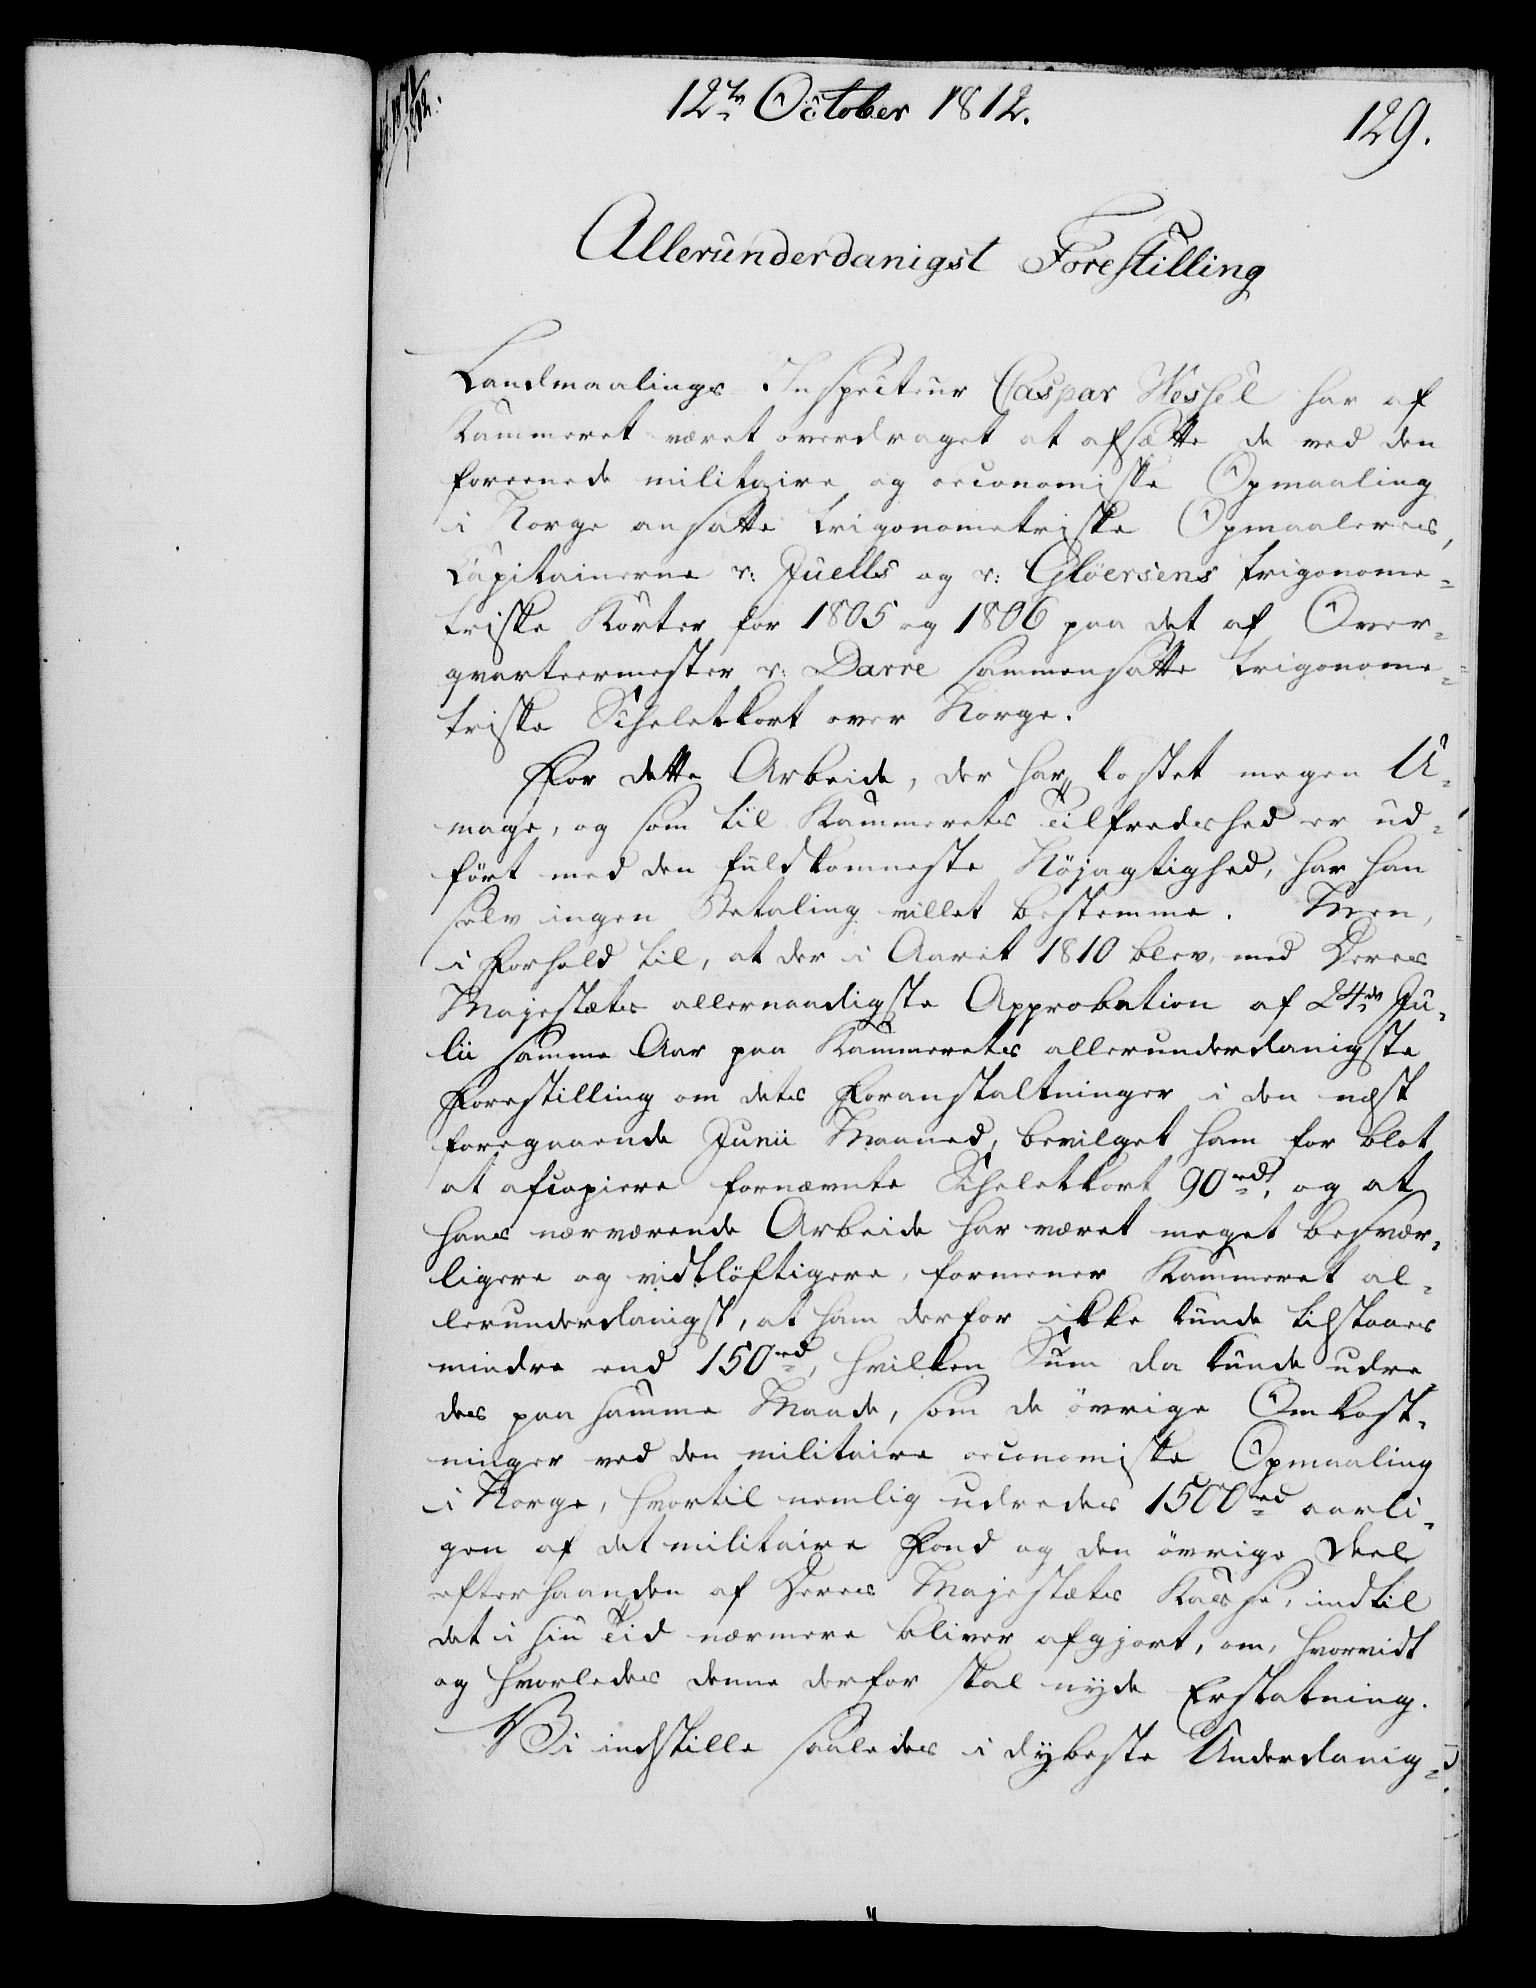 12te October 1812.
129.
Allerunderdanigst Forestilling
Landmaalings-Inspecteur Caspar Wessel har af
Kammeret været overdraget at afsætte de ved den
foreenede militaire og oeconomiske Opmaaling
i Norge ansatte trigonometriske Opmaaleres,
Capitainerne v: Juells og v: Gløersens trigonome-
triske Karter for 1805 og 1806 paa det af Over-
qvarteermester v: Darre sammensatte trigonome-
triske Scheletkort over Norge.
For dette Arbeide, der har kostet megen U-
mage, og som til Kammerets Tilfredshed er ud-
ført med den fuldkomneste Nøjagtighed, har han
selv ingen Betaling villet bestemme. Men,
i Forhold til, at der i Aaret 1810 blev, med Deres
Majestæts allernaadigste Approbation af 24de Ju-
lii samme Aar paa Kammerets allerunderdanigste
Forestilling om dets Foranstaltninger i den næst
foregaaende Junii Maaned, bevilget ham for blot
at afcopiere fornævnte Scheletkort 90 rd, og at
hans nærværende Arbeide har været meget besvær-
ligere og vidtløftigere, formener Kammeret al-
lerunderdanigst, at ham derfor ikke kunde tilstaaes
mindre end 150 rd, hvilken Sum da kunde udre-
des paa samme Maade, som de øvrige Omkost-
ninger ved den militaire oeconomiske Opmaaling
i Norge, hvortil nemlig udredes 1500 rd aarli-
gen af det militaire Fond og den øvrige Deel
efterhaanden af Deres Majestæts Kasse, indtil
det i sin Tid nærmere bliver afgjort, om, hvorvidt
og hvorledes denne derfor skal nyde Erstatning.
Vi indstille saaledes i dybeste Underdanig-